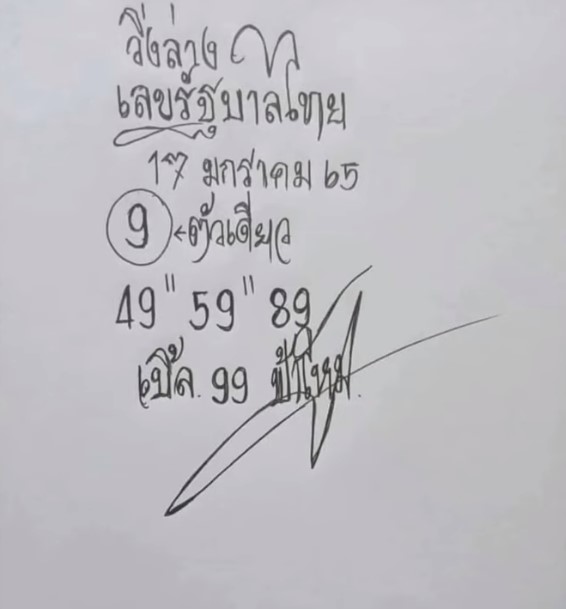 วิ่งล่าง
เลขรัฐบาลไทย
17 มกราคม 65
9 ←ตัวเดียว
49" 59" 89
เบิ้ล. 99 ป้าไหม.